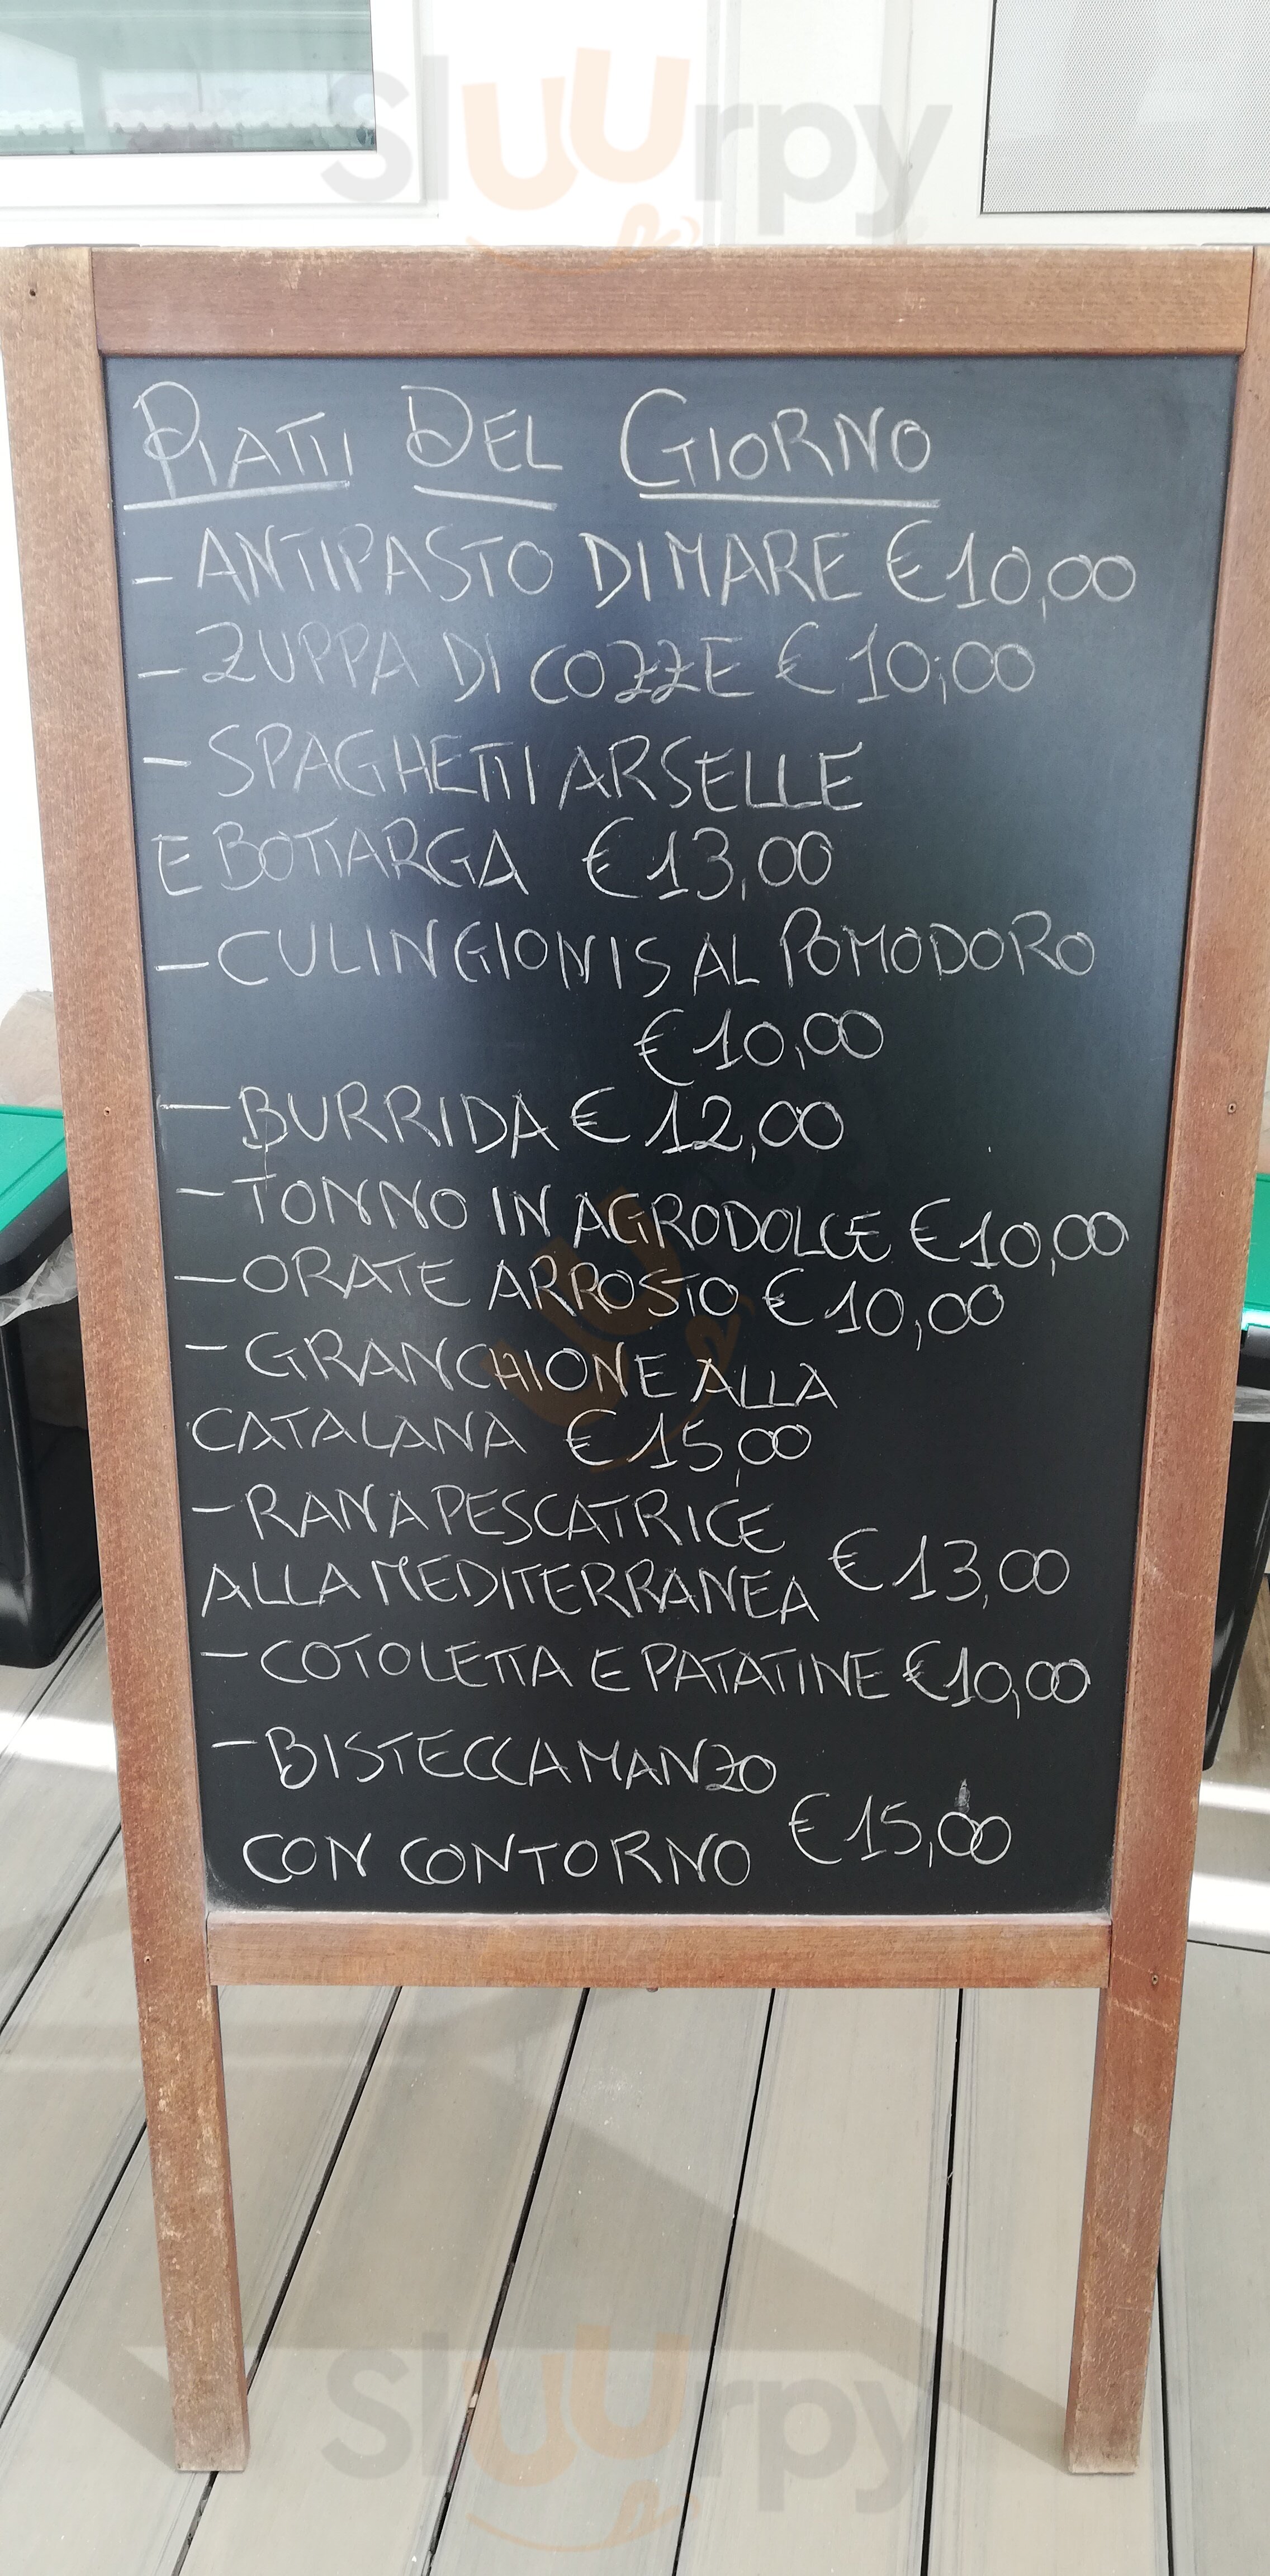 Sluurpy
PIATTI DEL GIORNO
- ANTIPASTO DI MARE € 10,00
- ZUPPA DI COZZE € 10,00
- SPAGHETTI ARSELLE
E BOTTARGA € 13,00
- CULINGIONIS AL POMODORO
€ 10,00
- BURRIDA € 12,00
- TONNO IN AGRODOLCE € 10,00
- ORATE ARROSTO € 10,00
- GRANCHIONE ALLA
CATALANA € 15,00
- RANA PESCATRICE
ALLA MEDITERRANEA € 13,00
- COTOLETTA E PATATINE € 10,00
- BISTECCA MANZO
CON CONTORNO € 15,00
Sluurpy